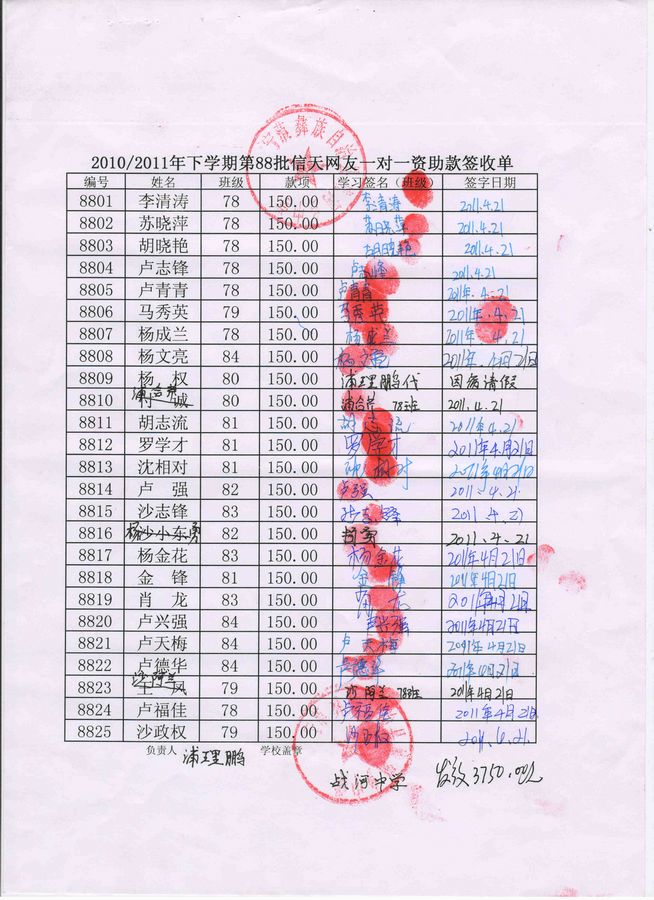 宁蒗彝族自
2010/2011年下学期第88批信天网友一对一资助款签收单
编号 姓名 班级 款项 学习签名（班级） 签字日期
8801 李清涛 78 150.00 李清涛 2011.4.21
8802 苏晓萍 78 150.00 苏晓萍 2011.4.21
8803 胡晓艳 78 150.00 胡晓艳 2011.4.21
8804 卢志锋 78 150.00 卢志峰 2011.4.21
8805 卢青青 78 150.00 卢青青 2011年.4.21
8806 马秀英 79 150.00 马秀英 2011年.4.21
8807 杨成兰 78 150.00 杨成兰 2011年.4.21
8808 杨文亮 84 150.00 杨文亮 2011年.4月21日
8809 杨 权 80 150.00 浦理鹏代 因病请假
8810 诚 80 150.00 78班 2011.4.21
8811 胡志流 81 150.00 胡志流 2011年4.21
8812 罗学才 81 150.00 罗学才 2011年4月21日
8813 沈相对 81 150.00 沈相对 2011年4月21日
8814 卢 强 82 150.00 卢强 2011.4.21.
8815 沙志锋 82 150.00 沙志锋 2011.4.21
8816 杨沙小东勇 82 150.00 杨勇 2011.4.21
8817 杨金花 83 150.00 杨金花 2011年4月21日
8818 金 锋 81 150.00 金锋 2011年4月21日
8819 肖 龙 83 150.00 肖龙 2011年4月21日
8820 卢兴强 84 150.00 卢兴强 2011年4月21日
8821 卢天梅 84 150.00 卢天梅 2011年4月21日
8822 卢德华 84 150.00 卢德华 2011年4月21日
8823 王 凤 79 150.00 78班 2011年4月21日
8824 卢福佳 78 150.00 卢福佳 2011年4月21日
8825 沙政权 79 150.00 沙政权 2011.4.21.
负责人 浦理鹏 学校盖章
战河中学 发放3750.00元